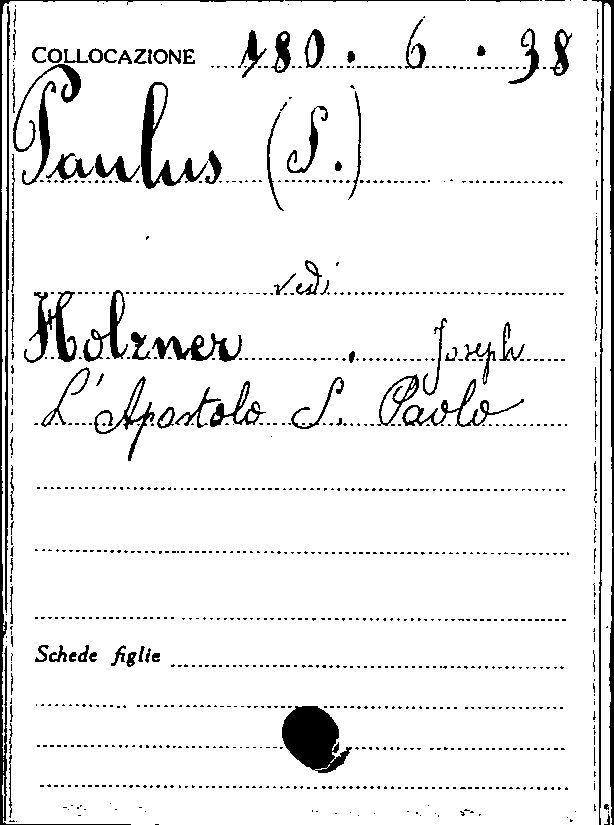 COLLOCAZIONE 180. 6. 38
Paulus (S.)
vedi
Holzner. Joseph
L'Apostolo S. Paolo
Schede figlie